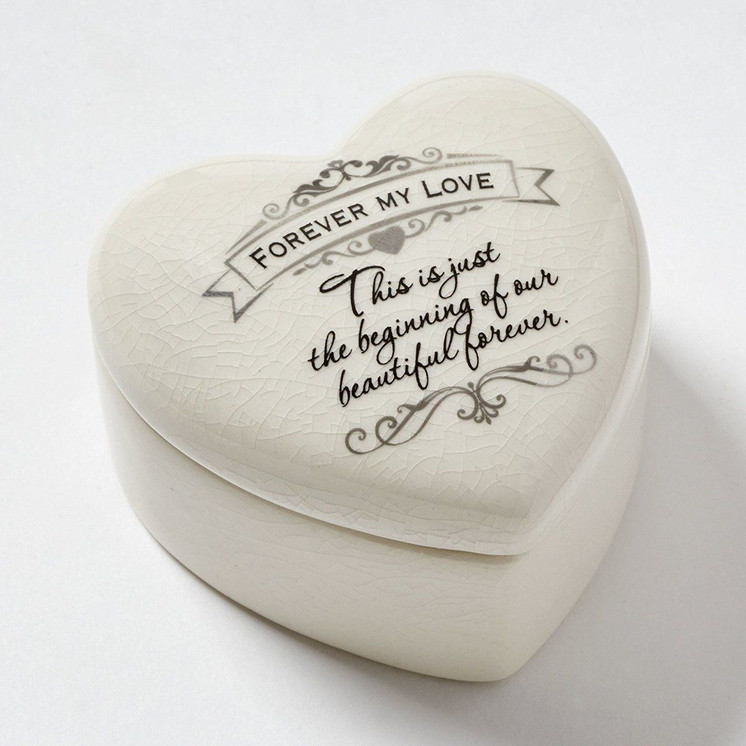 FOREVER MY LOVE
This is just
the beginning of our
beautiful forever.